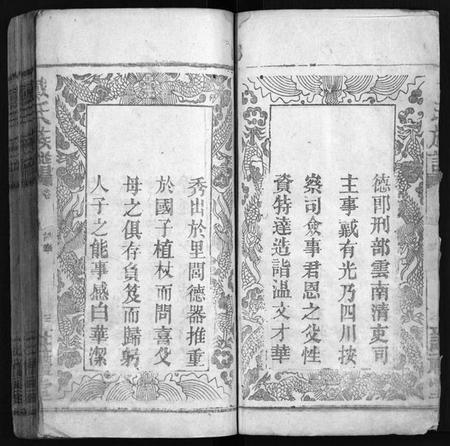 德郎刑部雲南清吏司
主事臧有光乃四川按
察司僉事君恩之父性
資特達造詣溫文才華
秀出於里閭德器推重
於國子植杖而問喜父
母之俱存負笈而歸躬
人子之能事感白華潔
氏族譜